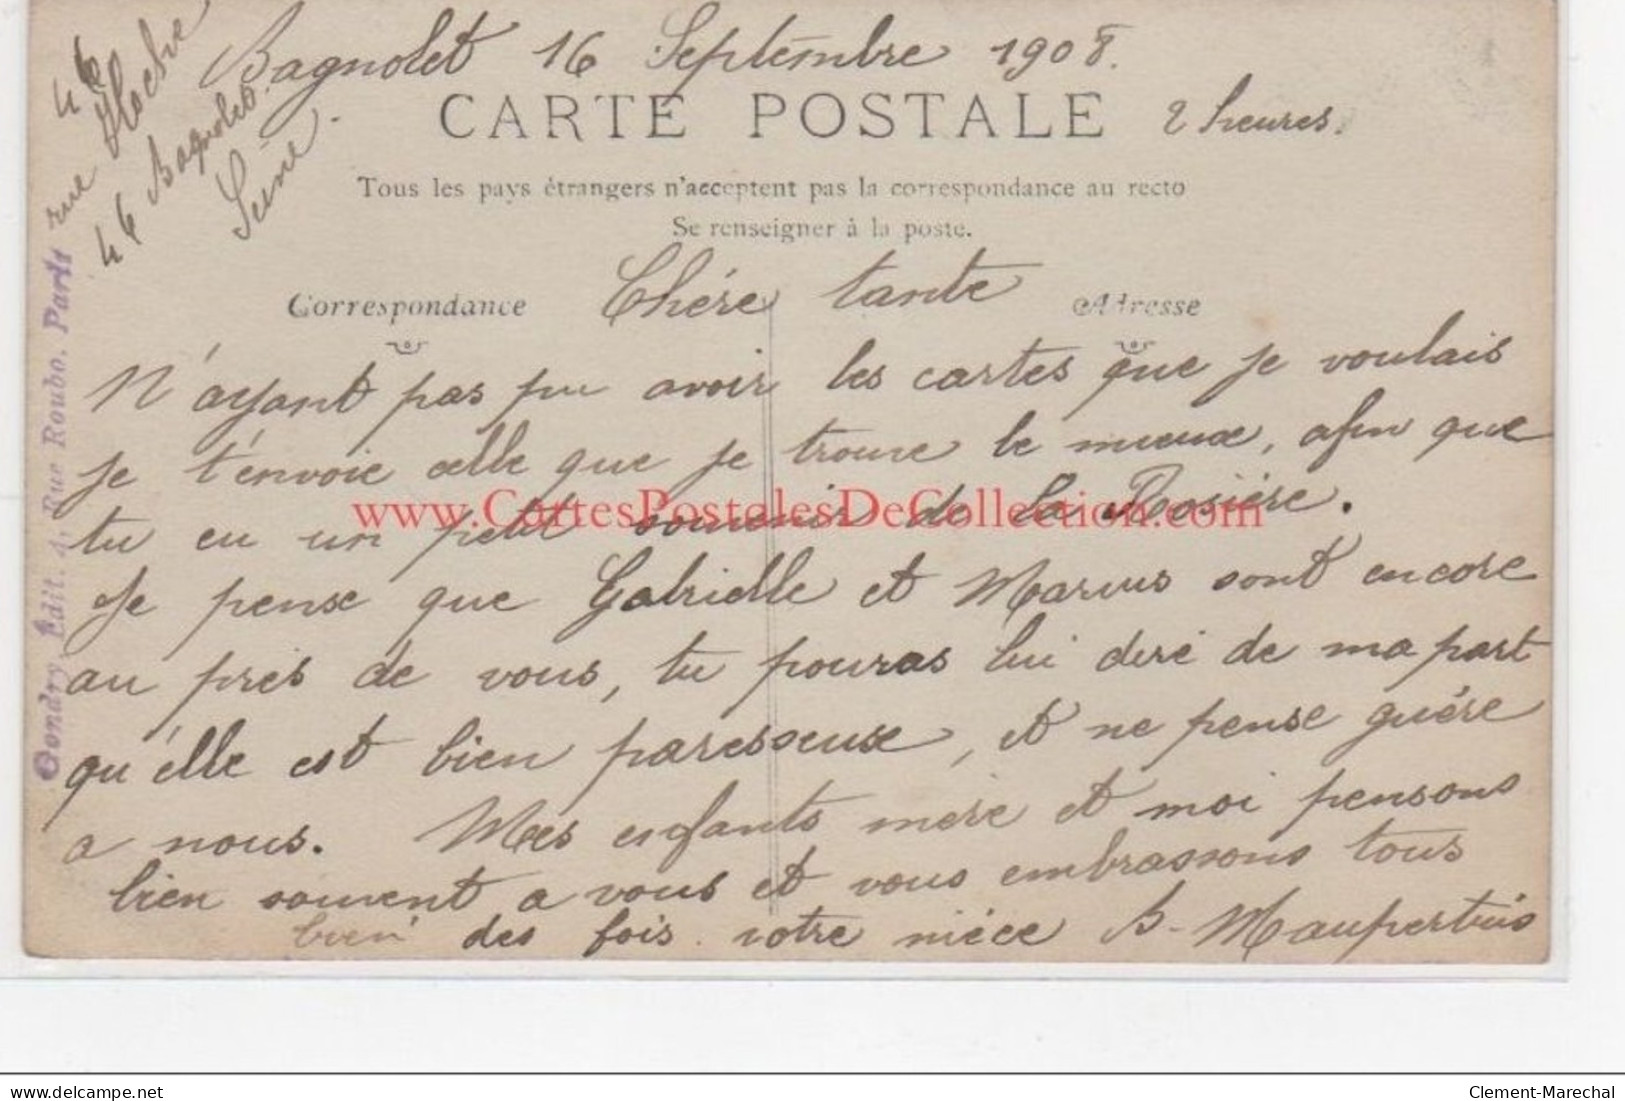 46
rue Hoche
46 Bagnolet.
Seine.
Bagnolet 16 Septembre 1908.
CARTE POSTALE
2 heures.
Tous les pays étrangers n'acceptent pas la correspondance au recto
Se renseigner à la poste.
Correspondance
Adresse
Chére tante
N'ayant pas pu avoir les cartes que je voulais
je t'envoie celle que je trouve le mieux, afin que
tu eu un petit souvenir de la Rosiére.
www.CartesPostalesDeCollection.com
Je pense que Gabrielle et Marius sont encore
au près de vous, tu pouras lui dire de ma part
qu'elle est bien paresseuse, et ne pense guére
a nous. Mes enfants mère et moi pensons
bien souvent a vous et vous embrassons tous
bien des fois. votre niéce B. Maupertuis
Gondry Édit. 4, Rue Roubo. Paris
delcampe.net
Clement-Marechal